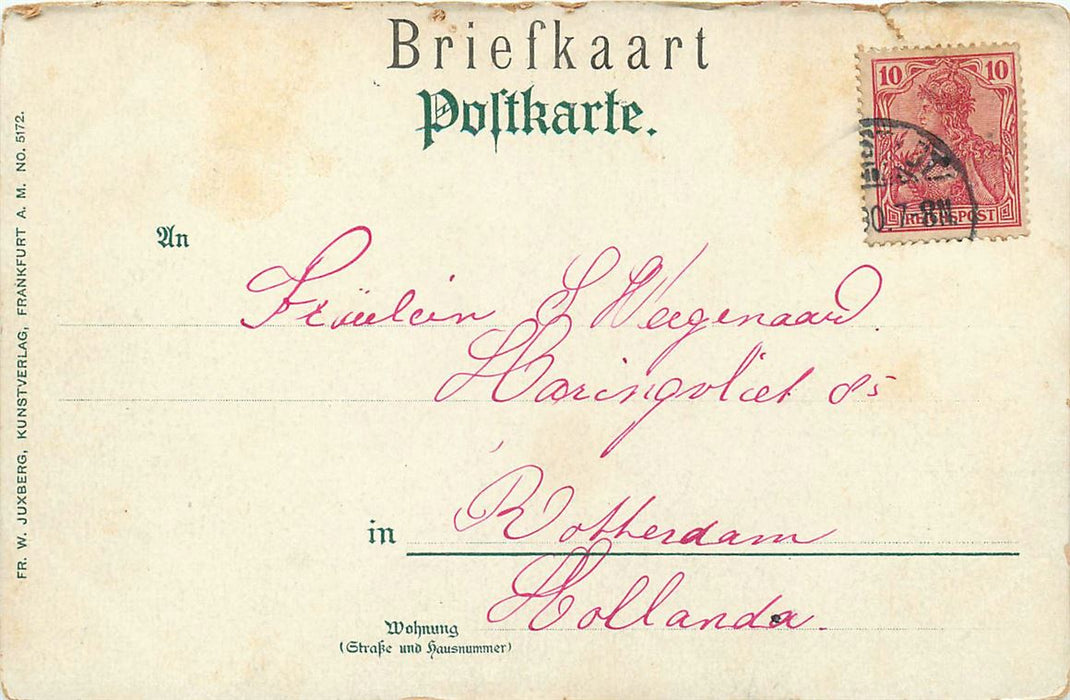 Briefkaart
Postkarte.
10 10
REICHSPOST
30.7 8N.
An
Fräulein S Weegenaard.
Haringvliet 85
in Rotterdam
Hollanda.
Wohnung
(Straße und Hausnummer)
FR. W. JUXBERG, KUNSTVERLAG, FRANKFURT A. M. NO. 5172.